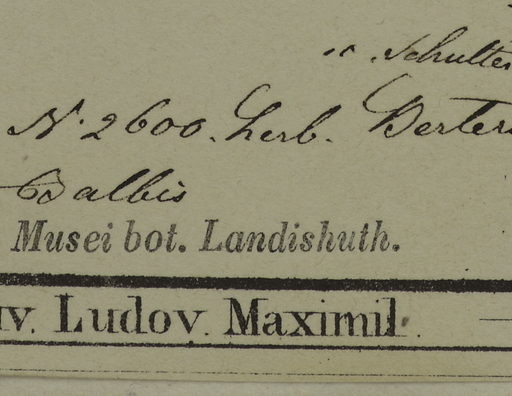 " . Schulter
N. 2600. herb. Berter
Balbis
Musei bot. Landishuth.
uv. Ludov. Maximil.